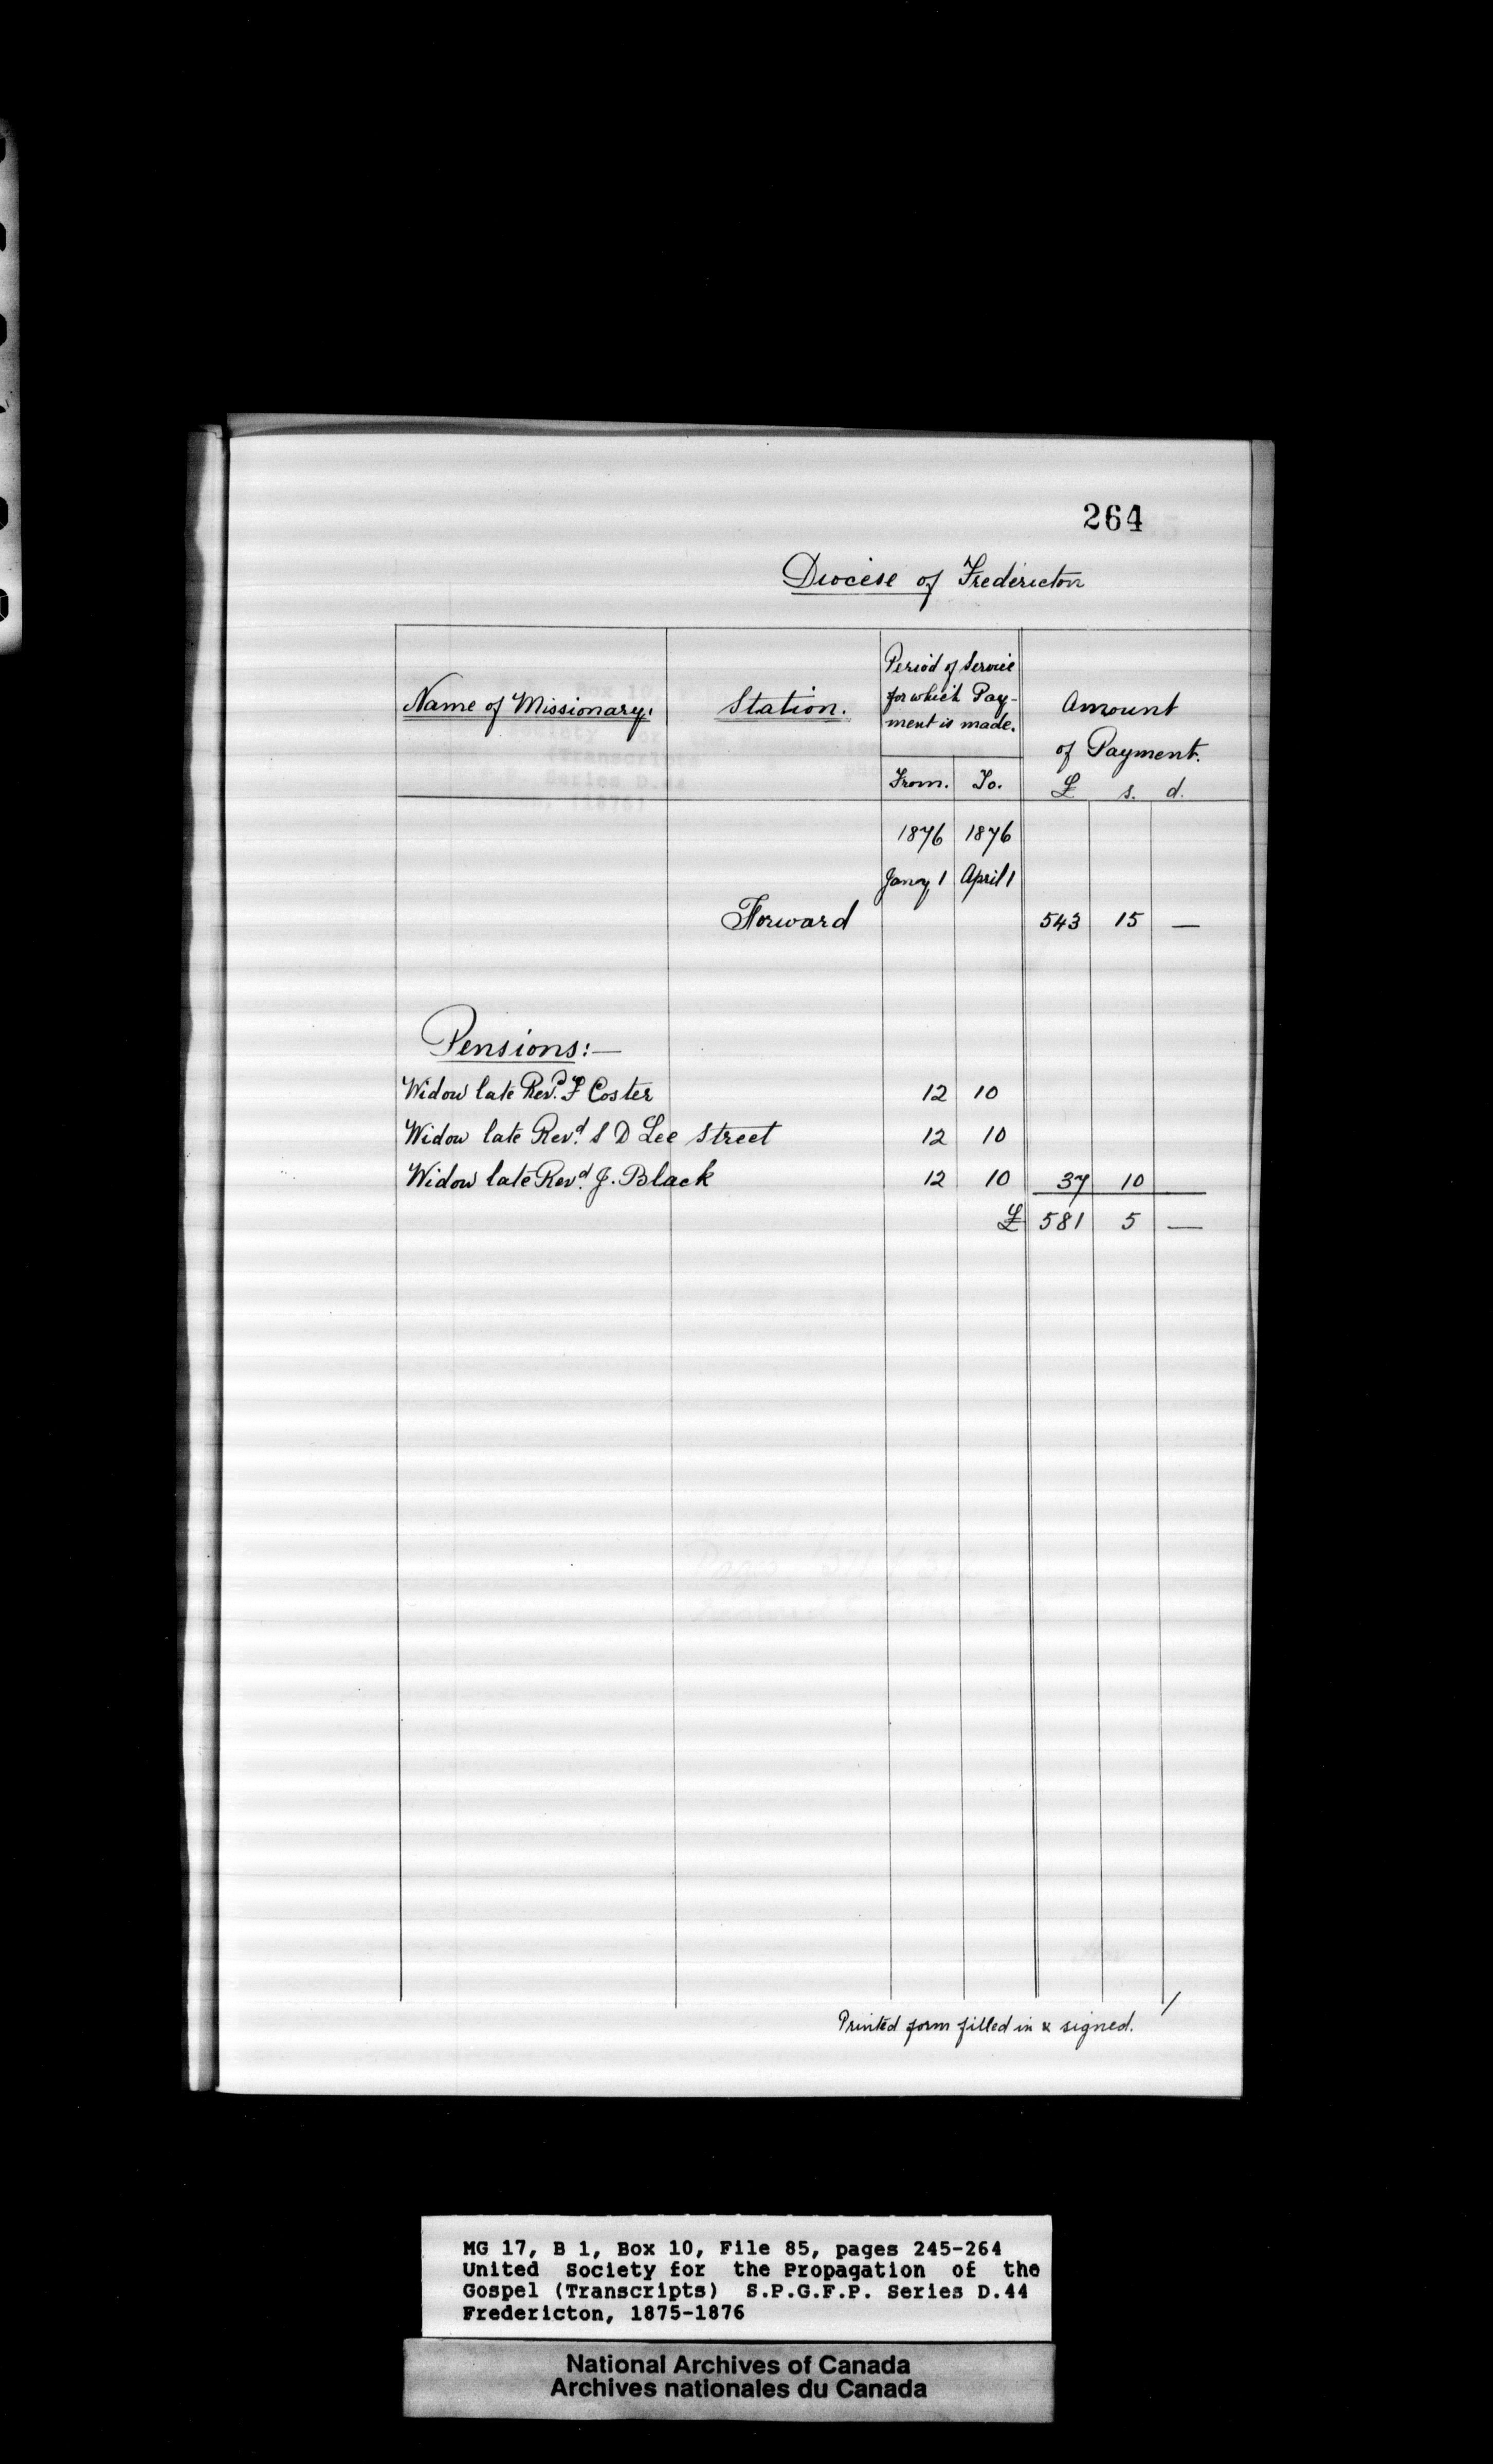 264
Diocese of Fredericton
Name of Missionary.
Station.
Period of Service
for which Pay-
ment is made.
Amount
of Payment.
From. To. £ s. d.
1876 1876
Jany 1 April 1
Forward 543 15 —
Pensions:—
Widow late Revd. F Coster 12 10
Widow late Revd. S D Lee Street 12 10
Widow late Revd. J. Black 12 10 37 10
£ 581 5 —
Printed form filled in & signed.
MG 17, B 1, Box 10, File 85, pages 245-264
United Society for the Propagation of the
Gospel (Transcripts) S.P.G.F.P. Series D.44
Fredericton, 1875-1876
National Archives of Canada
Archives nationales du Canada